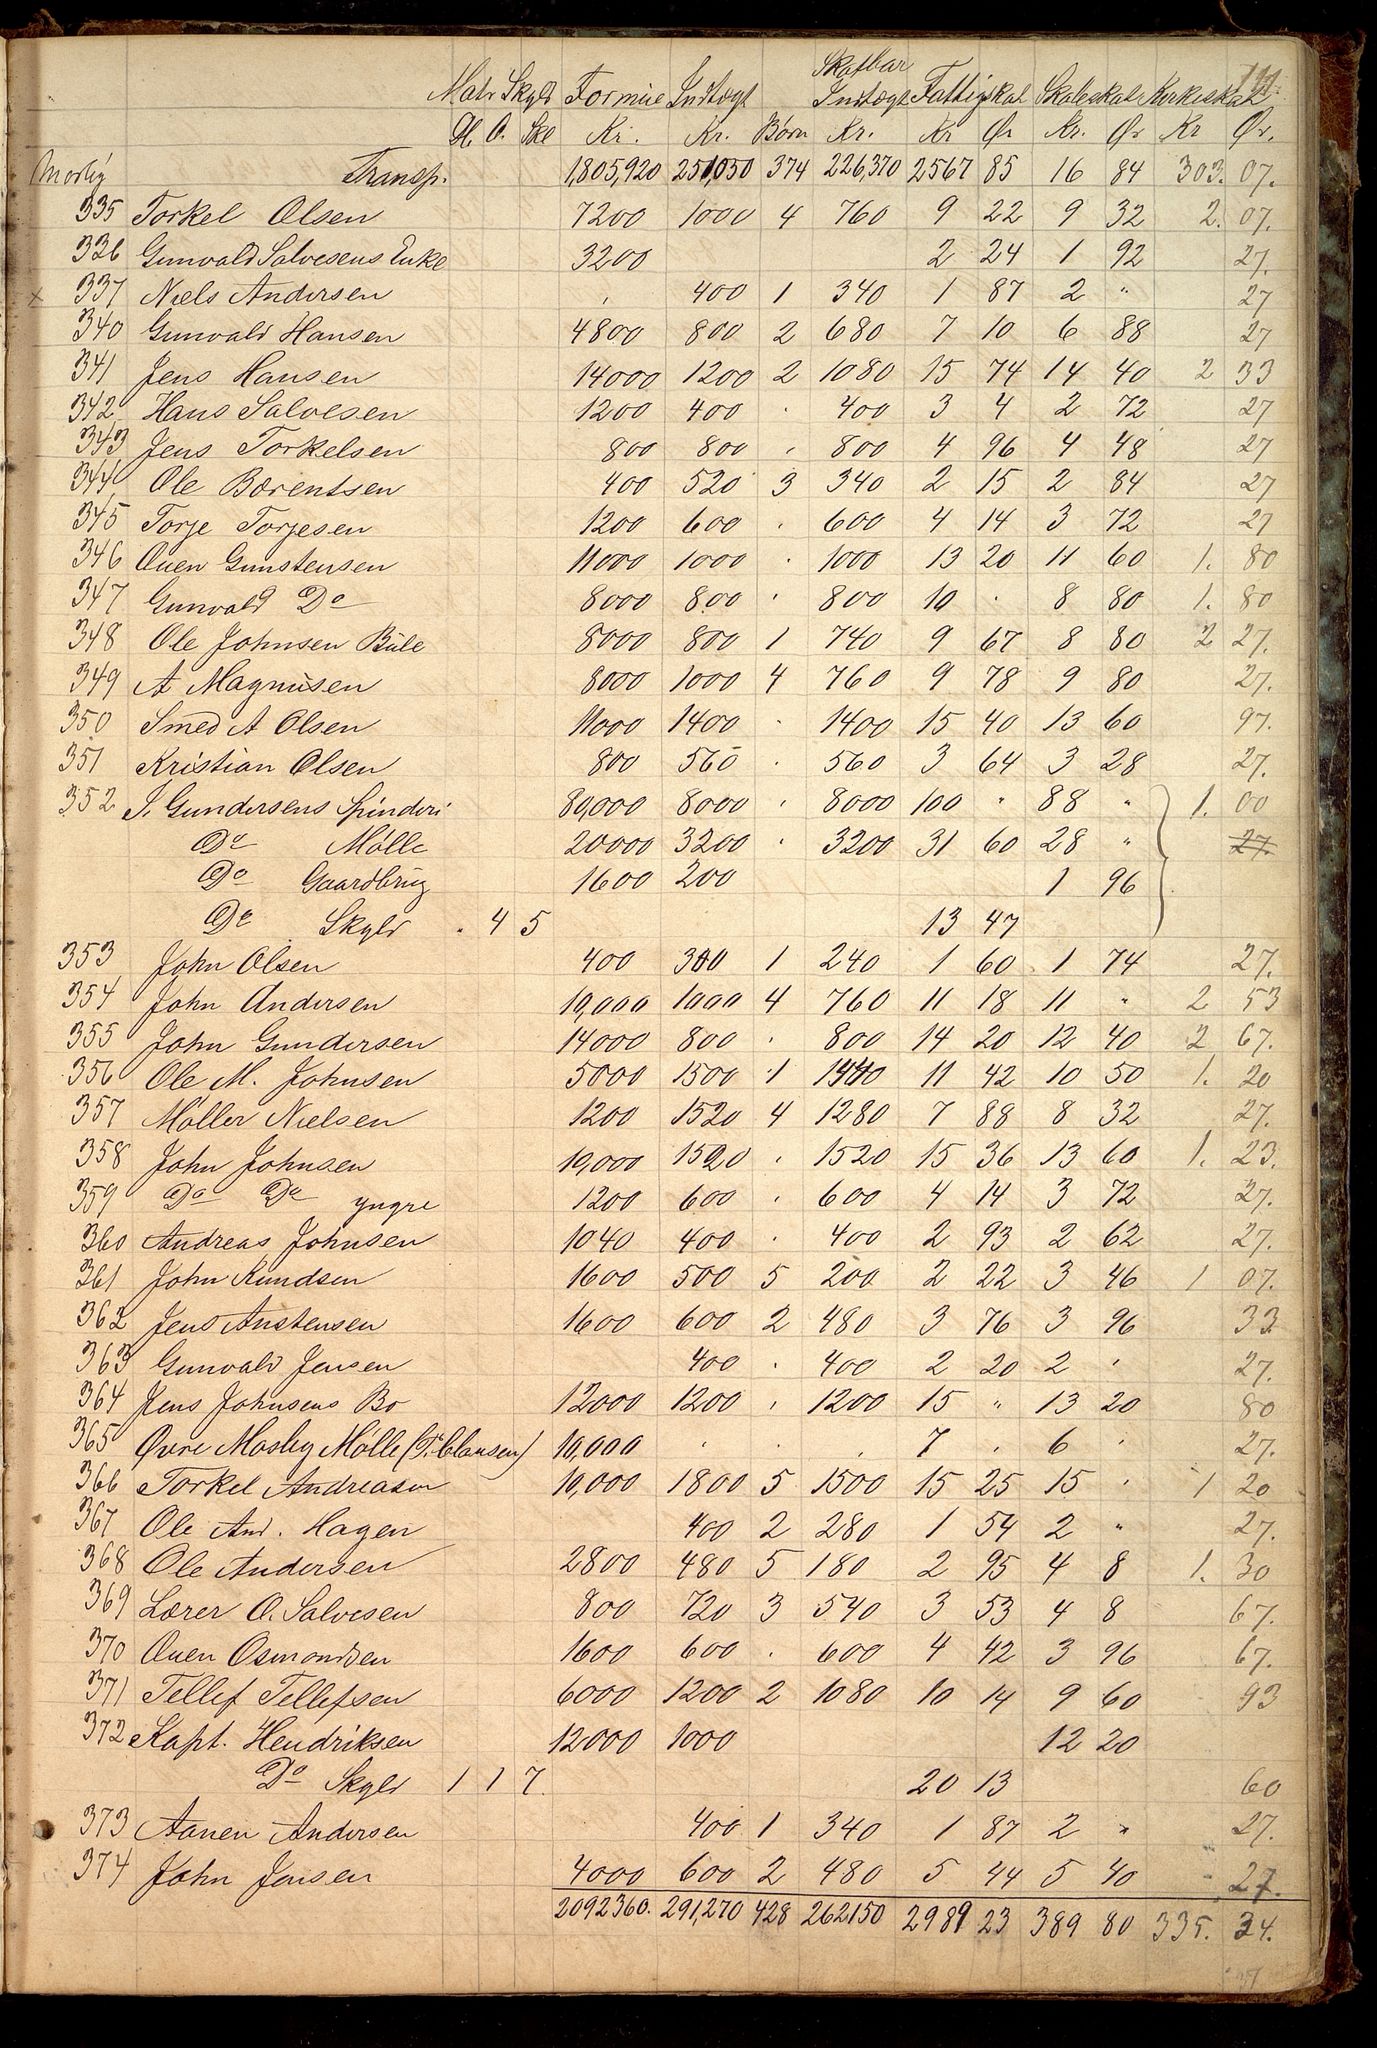 111.
Skatbar
Matr Skyld Formue Indtægt Indtægt Fattigskat Skoleskat Kirkeskat
D. O. Skl Kr. Kr. Børn Kr. Kr Ør Kr. Ør Kr Ør.
Mosby Transp. 1,805,920 251,050 374 226,370 2567 85 16 84 303. 07.
335 Torkel Olsen 7200 1000 4 760 9 22 9 32 2. 07.
336 Gunvald Salvesens Enke 3200 2 24 1 92 27.
x 337 Niels Andersen , 400 1 340 1 87 2 " 27
340 Gunvald Hansen 4800 800 2 680 7 10 6 88 27
341 Jens Hansen 14000 1200 2 1080 15 74 14 40 2 33
342 Hans Salvesen 1200 400 . 400 3 4 2 72 27
343 Jens Torkelsen 800 800 . 800 4 96 4 48 27
344 Ole Børentsen 400 520 3 340 2 15 2 84 27
345 Torje Torjesen 1200 600 . 600 4 14 3 72 27
346 Ouen Gunstensen 11000 1000 . 1000 13 20 11 60 1. 80
347 Gunvald Do 8000 800 . 800 10 . 8 80 1. 80
348 Ole Johnsen Büle 8000 800 1 740 9 67 8 80 2 27.
349 A Magnüsen 8000 1000 4 760 9 78 9 80 27.
350 Smed A Olsen 11000 1400 . 1400 15 40 13 60 97.
351 Kristian Olsen 800 560 . 560 3 64 3 28 27.
352 J. Gundersens Spinderi 80,000 8000 . 8000 100 " 88 " 1. 00
Do Mølle 20000 3200 . 3200 31 60 28 " 27.
Do Gaardbrug 1600 200 1 96
Do Skyld . 4 5 13 47
353 John Olsen 400 300 1 240 1 60 1 74 27.
354 John Andersen 10,000 1000 4 760 11 18 11 " 2 53
355 John Gundersen 14000 800 . 800 14 20 12 40 2 67.
356 Ole M. Johnsen 5000 1500 1 1440 11 42 10 50 1. 20
357 Møller Nielsen 1200 1520 4 1280 7 88 8 32 27.
358 John Johnsen 10,000 1520 . 1520 15 36 13 60 1. 23.
359 Do Do yngre 1200 600 . 600 4 14 3 72 27.
360 Andreas Johnsen 1040 400 . 400 2 93 2 62 27.
361 John Knudsen 1600 500 5 200 2 22 3 46 1 07.
362 Jens Anstensen 1600 600 2 480 3 76 3 96 33
363 Gunvald Jensen 400 . 400 2 20 2 . 27.
364 Jens Johnsens Bo 12000 1200 . 1200 15 " 13 20 80
365 Øvre Mosby Mølle (P. Clausen) 10,000 . . . 7 . 6 . 27.
366 Torkel Andreasen 10,000 1800 5 1500 15 25 15 . 1 20
367 Ole And. Hagen 400 2 280 1 54 2 " 27.
368 Ole Andersen 2800 480 5 180 2 95 4 8 1. 30
369 Lærer O. Salvesen 800 720 3 540 3 53 4 8 67.
370 Ouen Osmondsen 1600 600 . 600 4 42 3 96 67.
371 Tellef Tellefsen 6000 1200 2 1080 10 14 9 60 93
372 Kapt. Hendriksen 12000 1000 12 20
Do Skyld 1 1 7. 20 13 60
373 Aanen Andersen 400 1 340 1 87 2 " 27.
374 John Jensen 4000 600 2 480 5 44 5 40 27.
2092360. 291,270 428 262150 2989 23 389 80 335. 34.